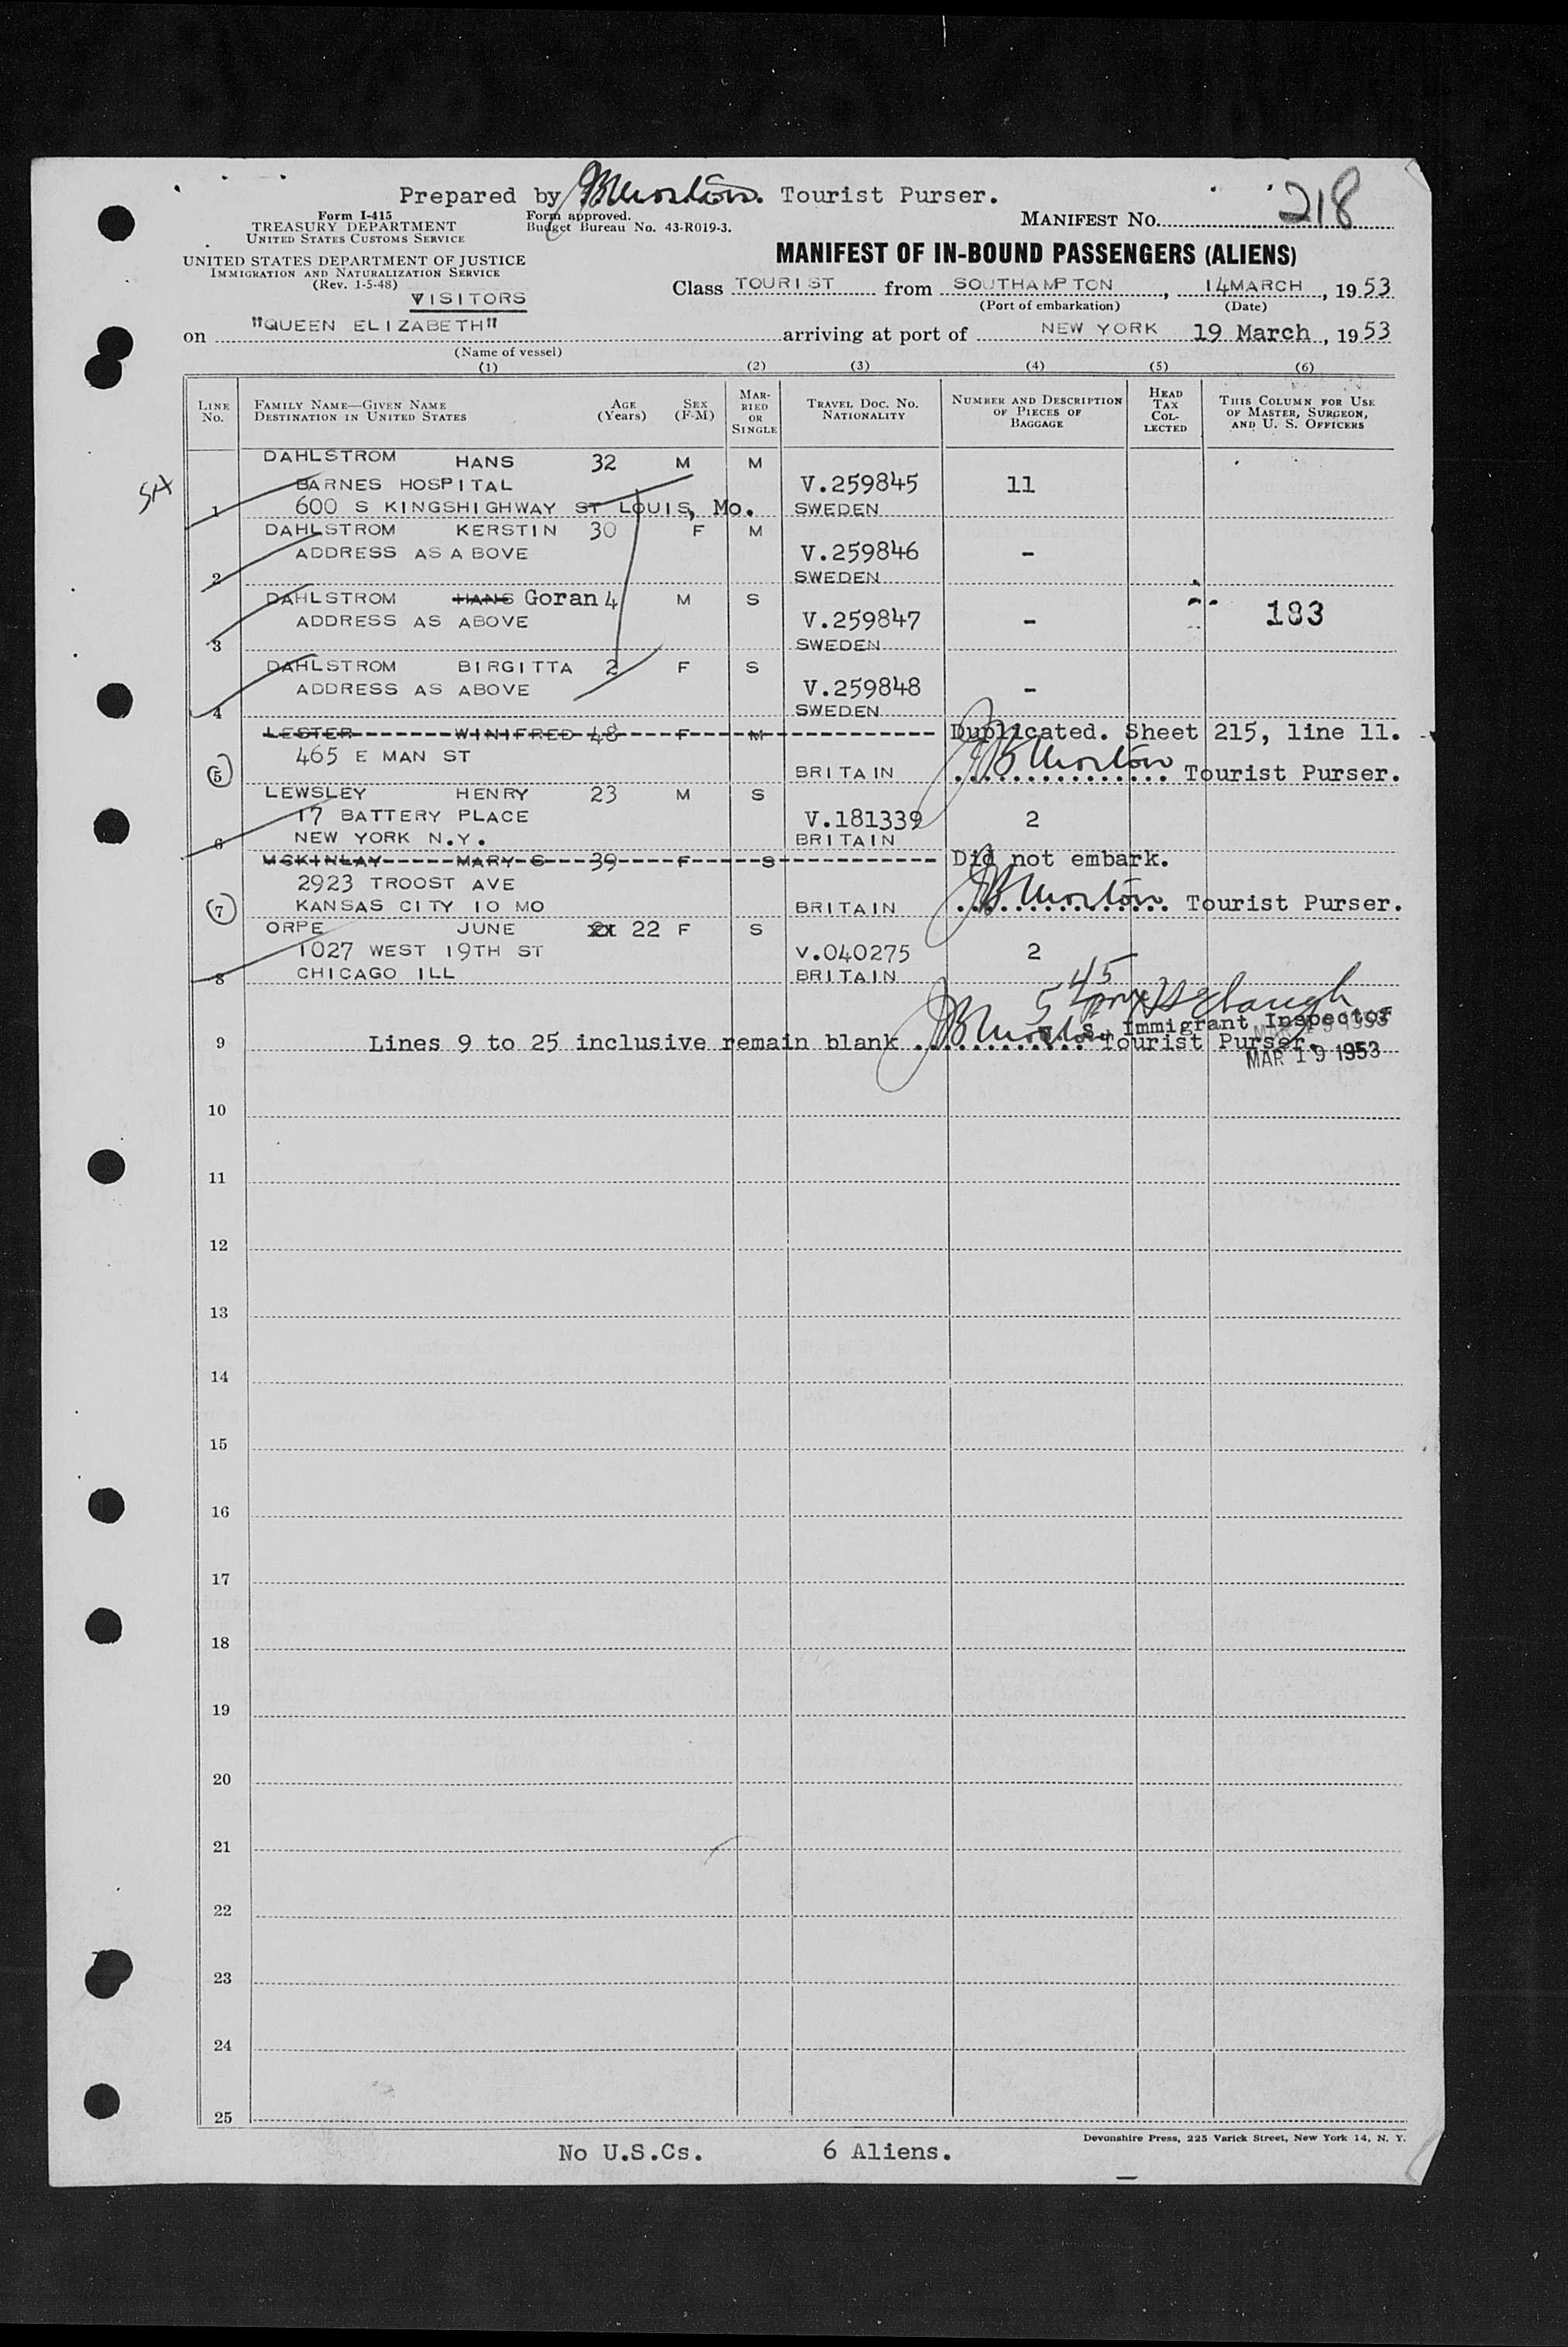 Prepared by JB Morton. Tourist Purser.
Form I-415
TREASURY DEPARTMENT
UNITED STATES CUSTOMS SERVICE
Form approved.
Budget Bureau No. 43-R019-3.
MANIFEST NO. 218
UNITED STATES DEPARTMENT OF JUSTICE
IMMIGRATION AND NATURALIZATION SERVICE
(Rev. 1-5-48)
VISITORS
MANIFEST OF IN-BOUND PASSENGERS (ALIENS)
Class TOURIST from SOUTHAMPTON, 14MARCH, 1953
(Port of embarkation) (Date)
on "QUEEN ELIZABETH" arriving at port of NEW YORK 19 March, 1953
(Name of vessel)
(1) (2) (3) (4) (5) (6)
LINE No.
FAMILY NAME—GIVEN NAME
DESTINATION IN UNITED STATES
AGE (Years)
SEX (F-M)
MARRIED OR SINGLE
TRAVEL DOC. NO. NATIONALITY
NUMBER AND DESCRIPTION OF PIECES OF BAGGAGE
HEAD TAX COLLECTED
THIS COLUMN FOR USE OF MASTER, SURGEON, AND U. S. OFFICERS
DAHLSTROM HANS 32 M M
BARNES HOSPITAL V.259845 11
1 600 S KINGSHIGHWAY ST LOUIS, Mo. SWEDEN
DAHLSTROM KERSTIN 30 F M
ADDRESS AS ABOVE V.259846 -
2 SWEDEN
DAHLSTROM HANS Goran 4 M S
ADDRESS AS ABOVE V.259847 - 183
3 SWEDEN
DAHLSTROM BIRGITTA 2 F S
ADDRESS AS ABOVE V.259848 -
4 SWEDEN
LESTER WINIFRED 48 F M Duplicated. Sheet 215, line 11.
465 E MAN ST
5 BRITAIN JB Morton Tourist Purser.
LEWSLEY HENRY 23 M S
17 BATTERY PLACE V.181339 2
6 NEW YORK N.Y. BRITAIN
MCKINLAY MARY S 39 F S Did not embark.
2923 TROOST AVE
7 KANSAS CITY 10 MO BRITAIN JB Morton Tourist Purser.
ORPE JUNE 22 F S
1027 WEST 19TH ST V.040275 2
8 CHICAGO ILL BRITAIN
545
U. S. Immigrant Inspector
MAR 19 1953
9 Lines 9 to 25 inclusive remain blank JB Morton Tourist Purser.
MAR 19 1953
10
11
12
13
14
15
16
17
18
19
20
21
22
23
24
25
Devonshire Press, 225 Varick Street, New York 14, N. Y.
No U.S.Cs. 6 Aliens.